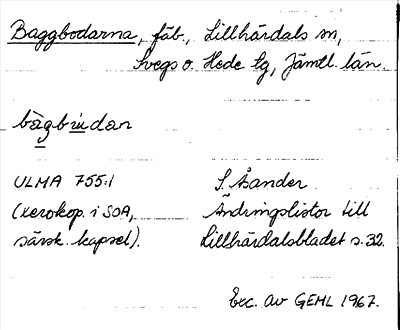 Baggbodarna, fäb., Lillhärdals sn,
Svegs o. Hede tg, Jämtl. län.
bàgbu̇dan
ULMA 755:1
(xerokop. i SOA,
särsk. kapsel).
S. Åsander
Ändringslistor till
Lillhärdalsbladet s. 32.
Exc. av GEHL 1967.